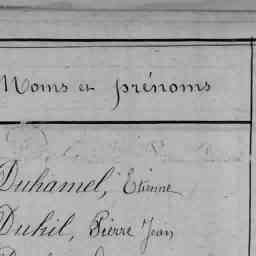 Noms et prénoms
Duhamel, Etienne
Duhil, Pierre Jean